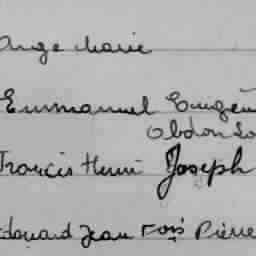 Ange Marie
Emmanuel Eugèn
Abdon Lo
Francis Henri Joseph
Edouard Jean Fois Pierre